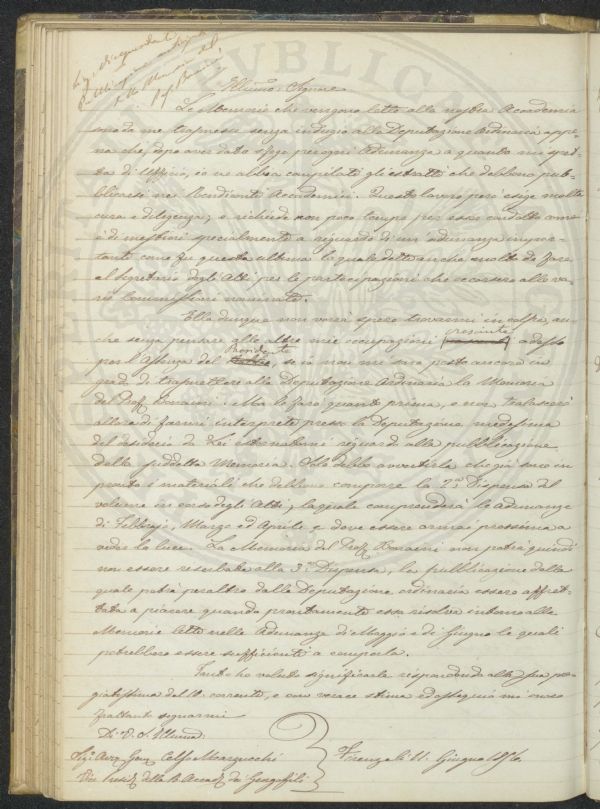 Illmo. Signore
Le Memorie che vengono lette alla nostra Accademia
sono da me trasmesse senza indugio alla Deputazione Ordinaria appe-
na che, dopo aver data sfogo per ogni Adunanza a quanto mi spet-
ta di Ufficio, io ne abbia compilati gli estratti che debbono pub-
blicarsi ne' Rendiconti Accademici. Questo lavoro però esige molta
cura e diligenza, e richiede non poco tempo per esser condotto come
è di mestieri specialmente a riguardo di un'adunanza impor-
tante come fu questa ultima la quale dette anche molto da fare
al Segretario degli Atti per le partecipazioni che occorsero alle va-
rie Commissioni nominate.
Ella dunque non vorrà spero trovarmi in colpa, an-
che senza pensare alle altre mie occupazioni cresciute adesso
per l'assenza del Presidente, se io non mi sono posto ancora in
grado di trasmettere alla Deputazione Ordinaria la Memoria
del Prof. Bonaini. Ma lo farò quanto prima, e non tralascerò
altresì di farmi interprete presso la Deputazione medesima
del desiderio di Lei esternatomi riguardo alla pubblicazione
della suddetta Memoria. Solo debbo avvertirla che già sono in
pronto i materiali che debbono comporre la 2a. Dispensa del
volume in corso degli Atti, la quale comprenderà le adunanze
di Febbrajo, Marzo ed Aprile e deve essere ormai prossima a
veder la luce. La Memoria del Prof. Bonaini non potrà quindi
non essere reserbata alla 3a. Dispensa, la pubblicazione della
quale potrà peraltro dalla Deputazione ordinaria essere affret-
tata a piacere quando prontamente essa risolva intorno alle
Memorie lette nelle Adunanze di Maggio e di Giugno le quali
potrebbero essere sufficienti a comporla.
Tanto ho voluto significarle rispondendo alla sua pre-
giatissima del 10. corrente, e con verace stima ed ossequio mi onoro
frattanto segnarmi
Di V. S. Illma.
Sig. Avv. Gen. Celso Marzucchi
Vice Presid. della R. Accad. dei Georgofili
Firenze li 11. Giugno 1856.